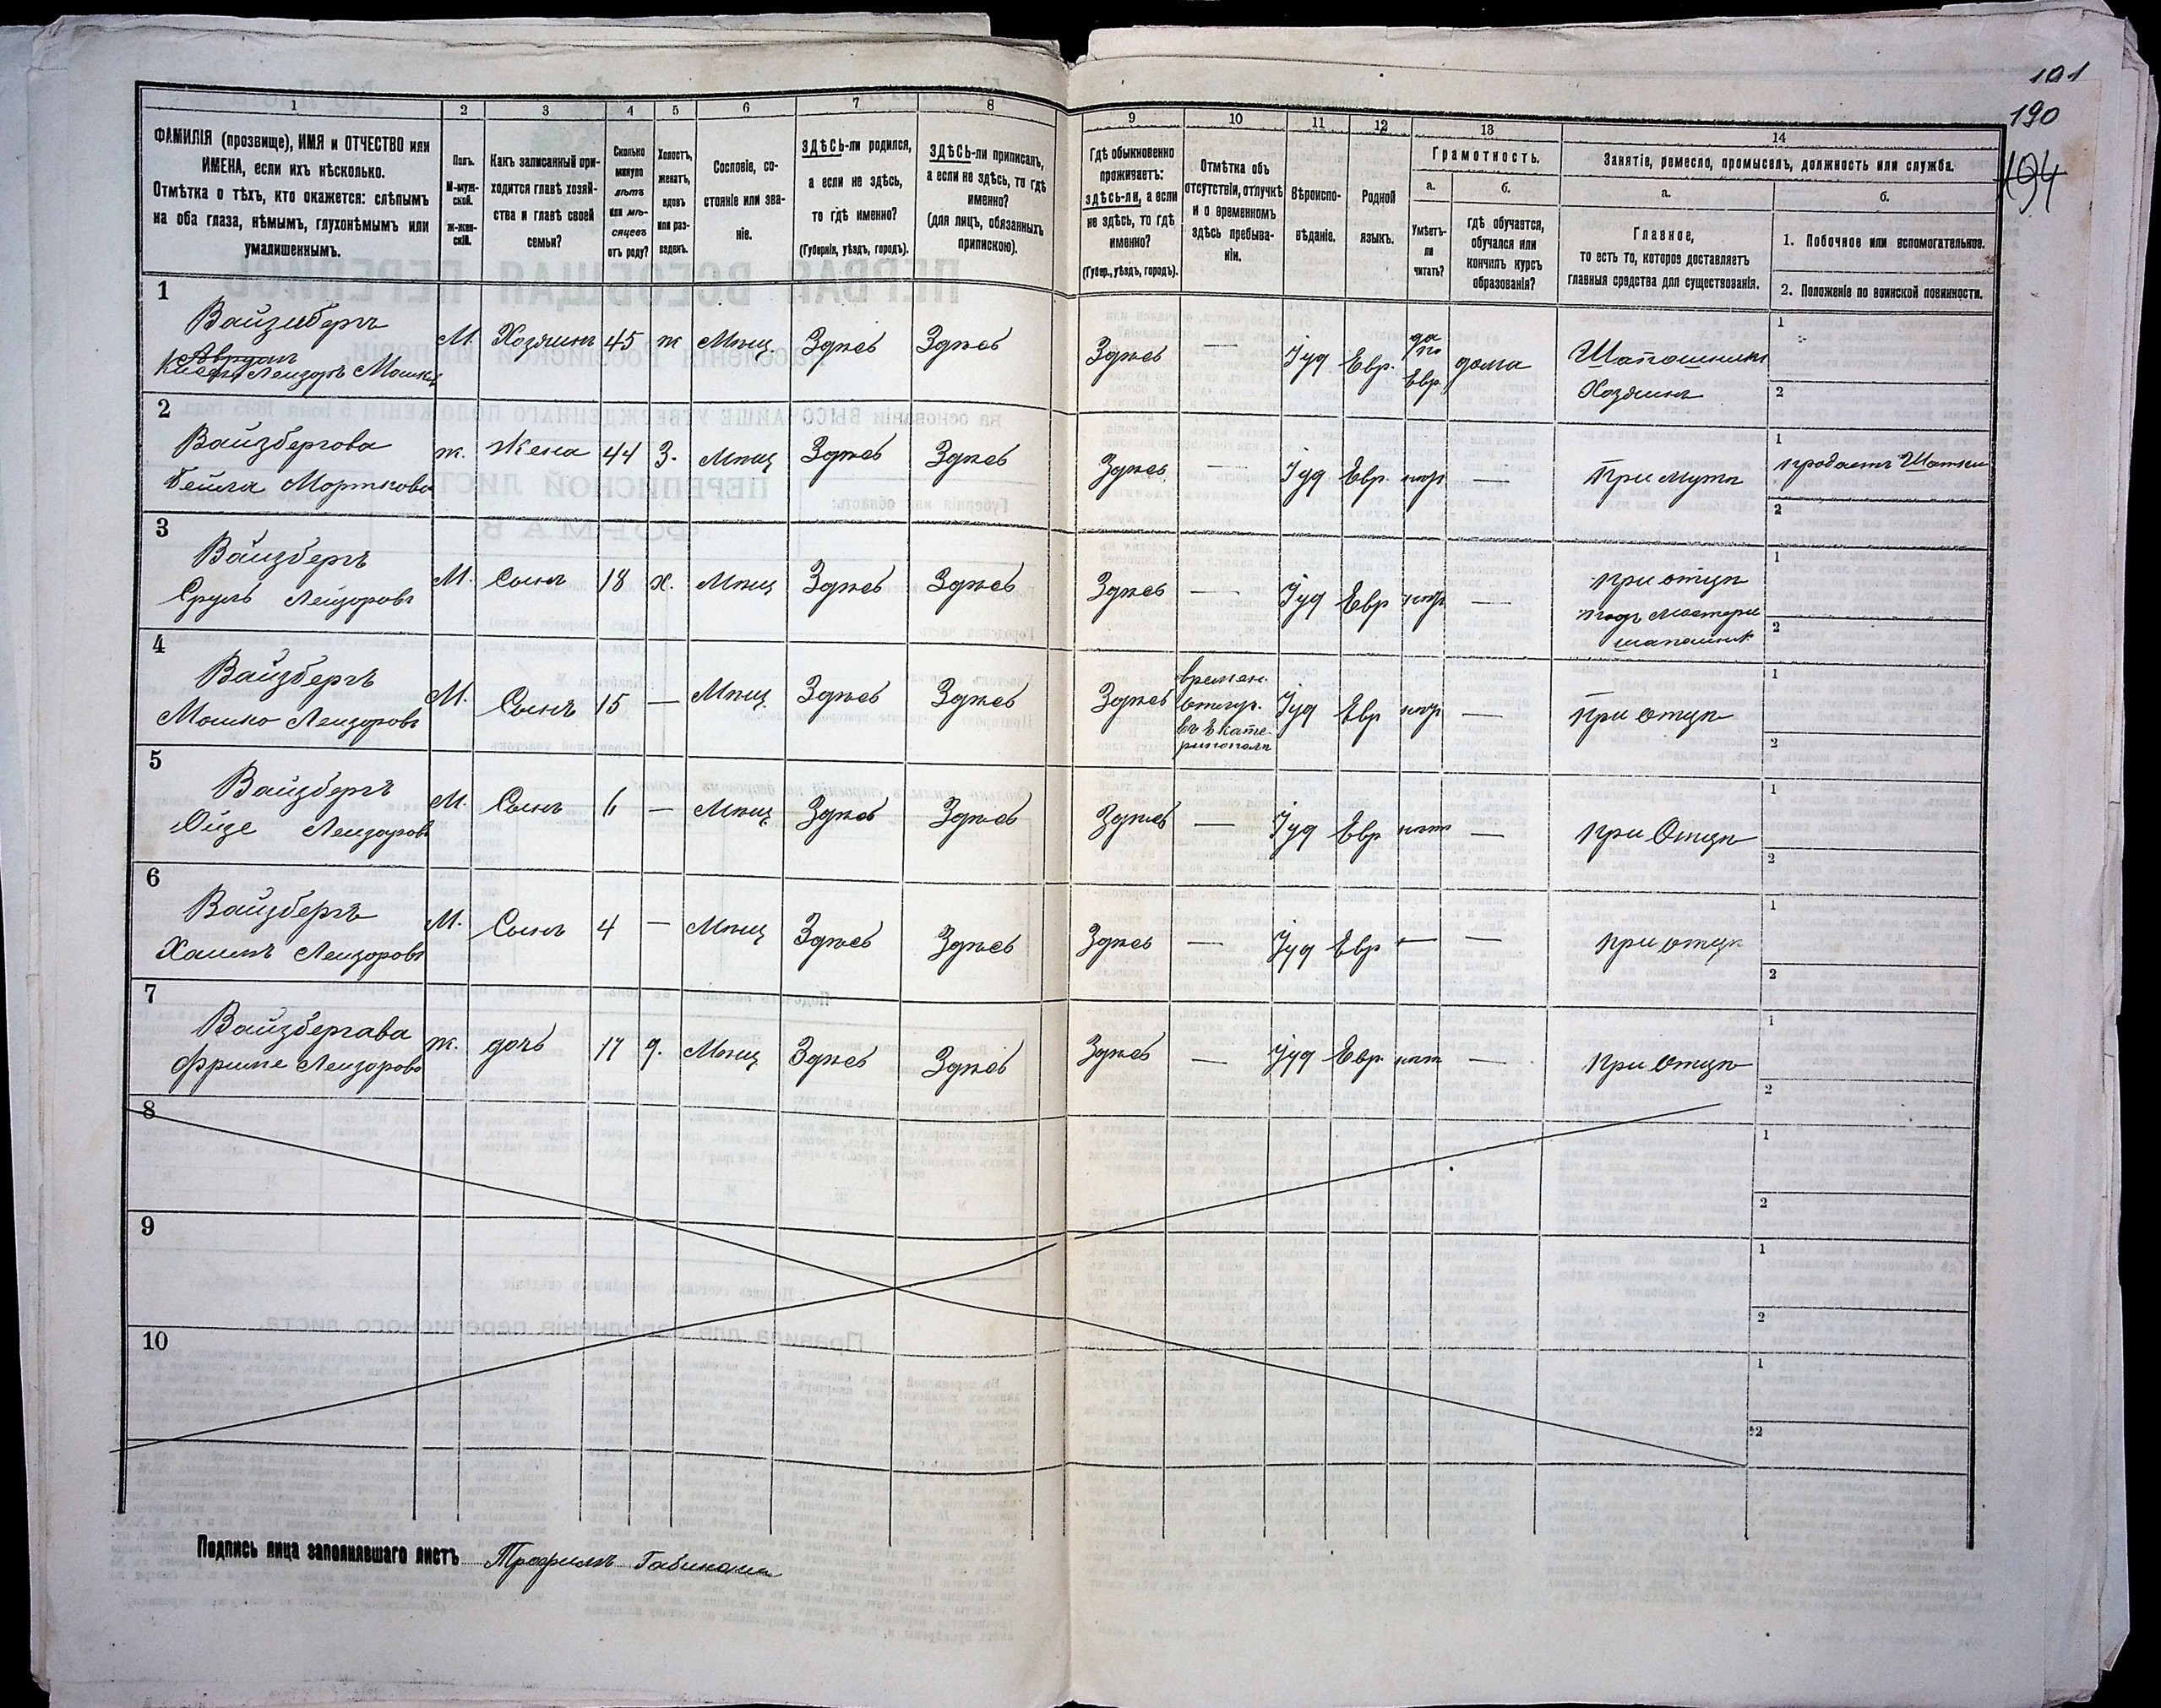 101
190
194
1 2 3 4 5 6 7 8 9 10 11 12 13 14
ФАМИЛІЯ (прозвище), ИМЯ и ОТЧЕСТВО или
ИМЕНА, если ихъ нѣсколько.
Отмѣтка о тѣхъ, кто окажется: слѣпымъ
на оба глаза, нѣмымъ, глухонѣмымъ или
умалишеннымъ.
Полъ.
М-муж-
ской.
Ж-жен-
скій.
Какъ записанный при-
ходится главѣ хозяй-
ства и главѣ своей
семьи?
Сколько
минуло
лѣтъ
или мѣ-
сяцевъ
отъ роду?
Холостъ,
женатъ,
вдовъ
или раз-
веденъ.
Сословіе, со-
стояніе или зва-
ніе.
ЗДѢСЬ-ли родился,
а если не здѣсь,
то гдѣ именно?
(Губернія, уѣздъ, городъ).
ЗДѢСЬ-ли приписанъ,
а если не здѣсь, то гдѣ
именно?
(для лицъ, обязанныхъ
припискою).
Гдѣ обыкновенно
проживаетъ:
здѣсь-ли, а если
не здѣсь, то гдѣ
именно?
(Губер., уѣздъ, городъ).
Отмѣтка объ
отсутствіи, отлучкѣ
и о временномъ
здѣсь пребыва-
ніи.
Вѣроиспо-
вѣданіе.
Родной
языкъ.
Грамотность.
а.
Умѣетъ-
ли
читать?
б.
гдѣ обучается,
обучался или
кончилъ курсъ
образованія?
Занятіе, ремесло, промыселъ, должность или служба.
а.
Главное,
то есть то, которое доставляетъ
главныя средства для существованія.
б.
1. Побочное или вспомогательное.
2. Положеніе по воинской повинности.
1
Вайзибергъ
Лейзоръ Мошк
М. Хозяинъ 45 ж Мѣщ. Здѣсь Здѣсь Здѣсь — Іуд Евр. да по Евр. дома Шапошникъ
Хозяинъ
1
2
2
Вайзбергова
Бейла Морткова
ж. Жена 44 З. Мѣщ Здѣсь Здѣсь Здѣсь — Іуд Евр. — При мужѣ
1 продаетъ Шапки
2
3
Вайзбергъ
Сруль Лейзоровъ
М. Сынъ 18 х. Мѣщ Здѣсь Здѣсь Здѣсь — Іуд Евр — при отцѣ
подъ мастери
шапошник
1
2
4
Вайзбергъ
Мошко Лейзоровъ
М. Сынъ 15 — Мѣщ. Здѣсь Здѣсь Здѣсь
времен.
отлуч.
въ Екате-
ринополѣ
Іуд Евр — при отцѣ
1
2
5
Вайзбергъ
Ойзе Лейзоровъ
М. Сынъ 6 — Мѣщ Здѣсь Здѣсь Здѣсь — Іуд Евр нѣтъ — при Отцѣ
1
2
6
Вайзбергъ
Хаимъ Лейзоровъ
М. Сынъ 4 — Мѣщ Здѣсь Здѣсь Здѣсь — Іуд Евр — — при отцѣ
1
2
7
Вайзбергава
Фриме Лейзорова
ж. дочь 17 д. Мѣщ Здѣсь Здѣсь Здѣсь — Іуд Евр. нѣт — при Отцѣ
1
2
8
1
2
9
1
2
10
1
2
Подпись лица заполнявшаго листъ Трофимъ